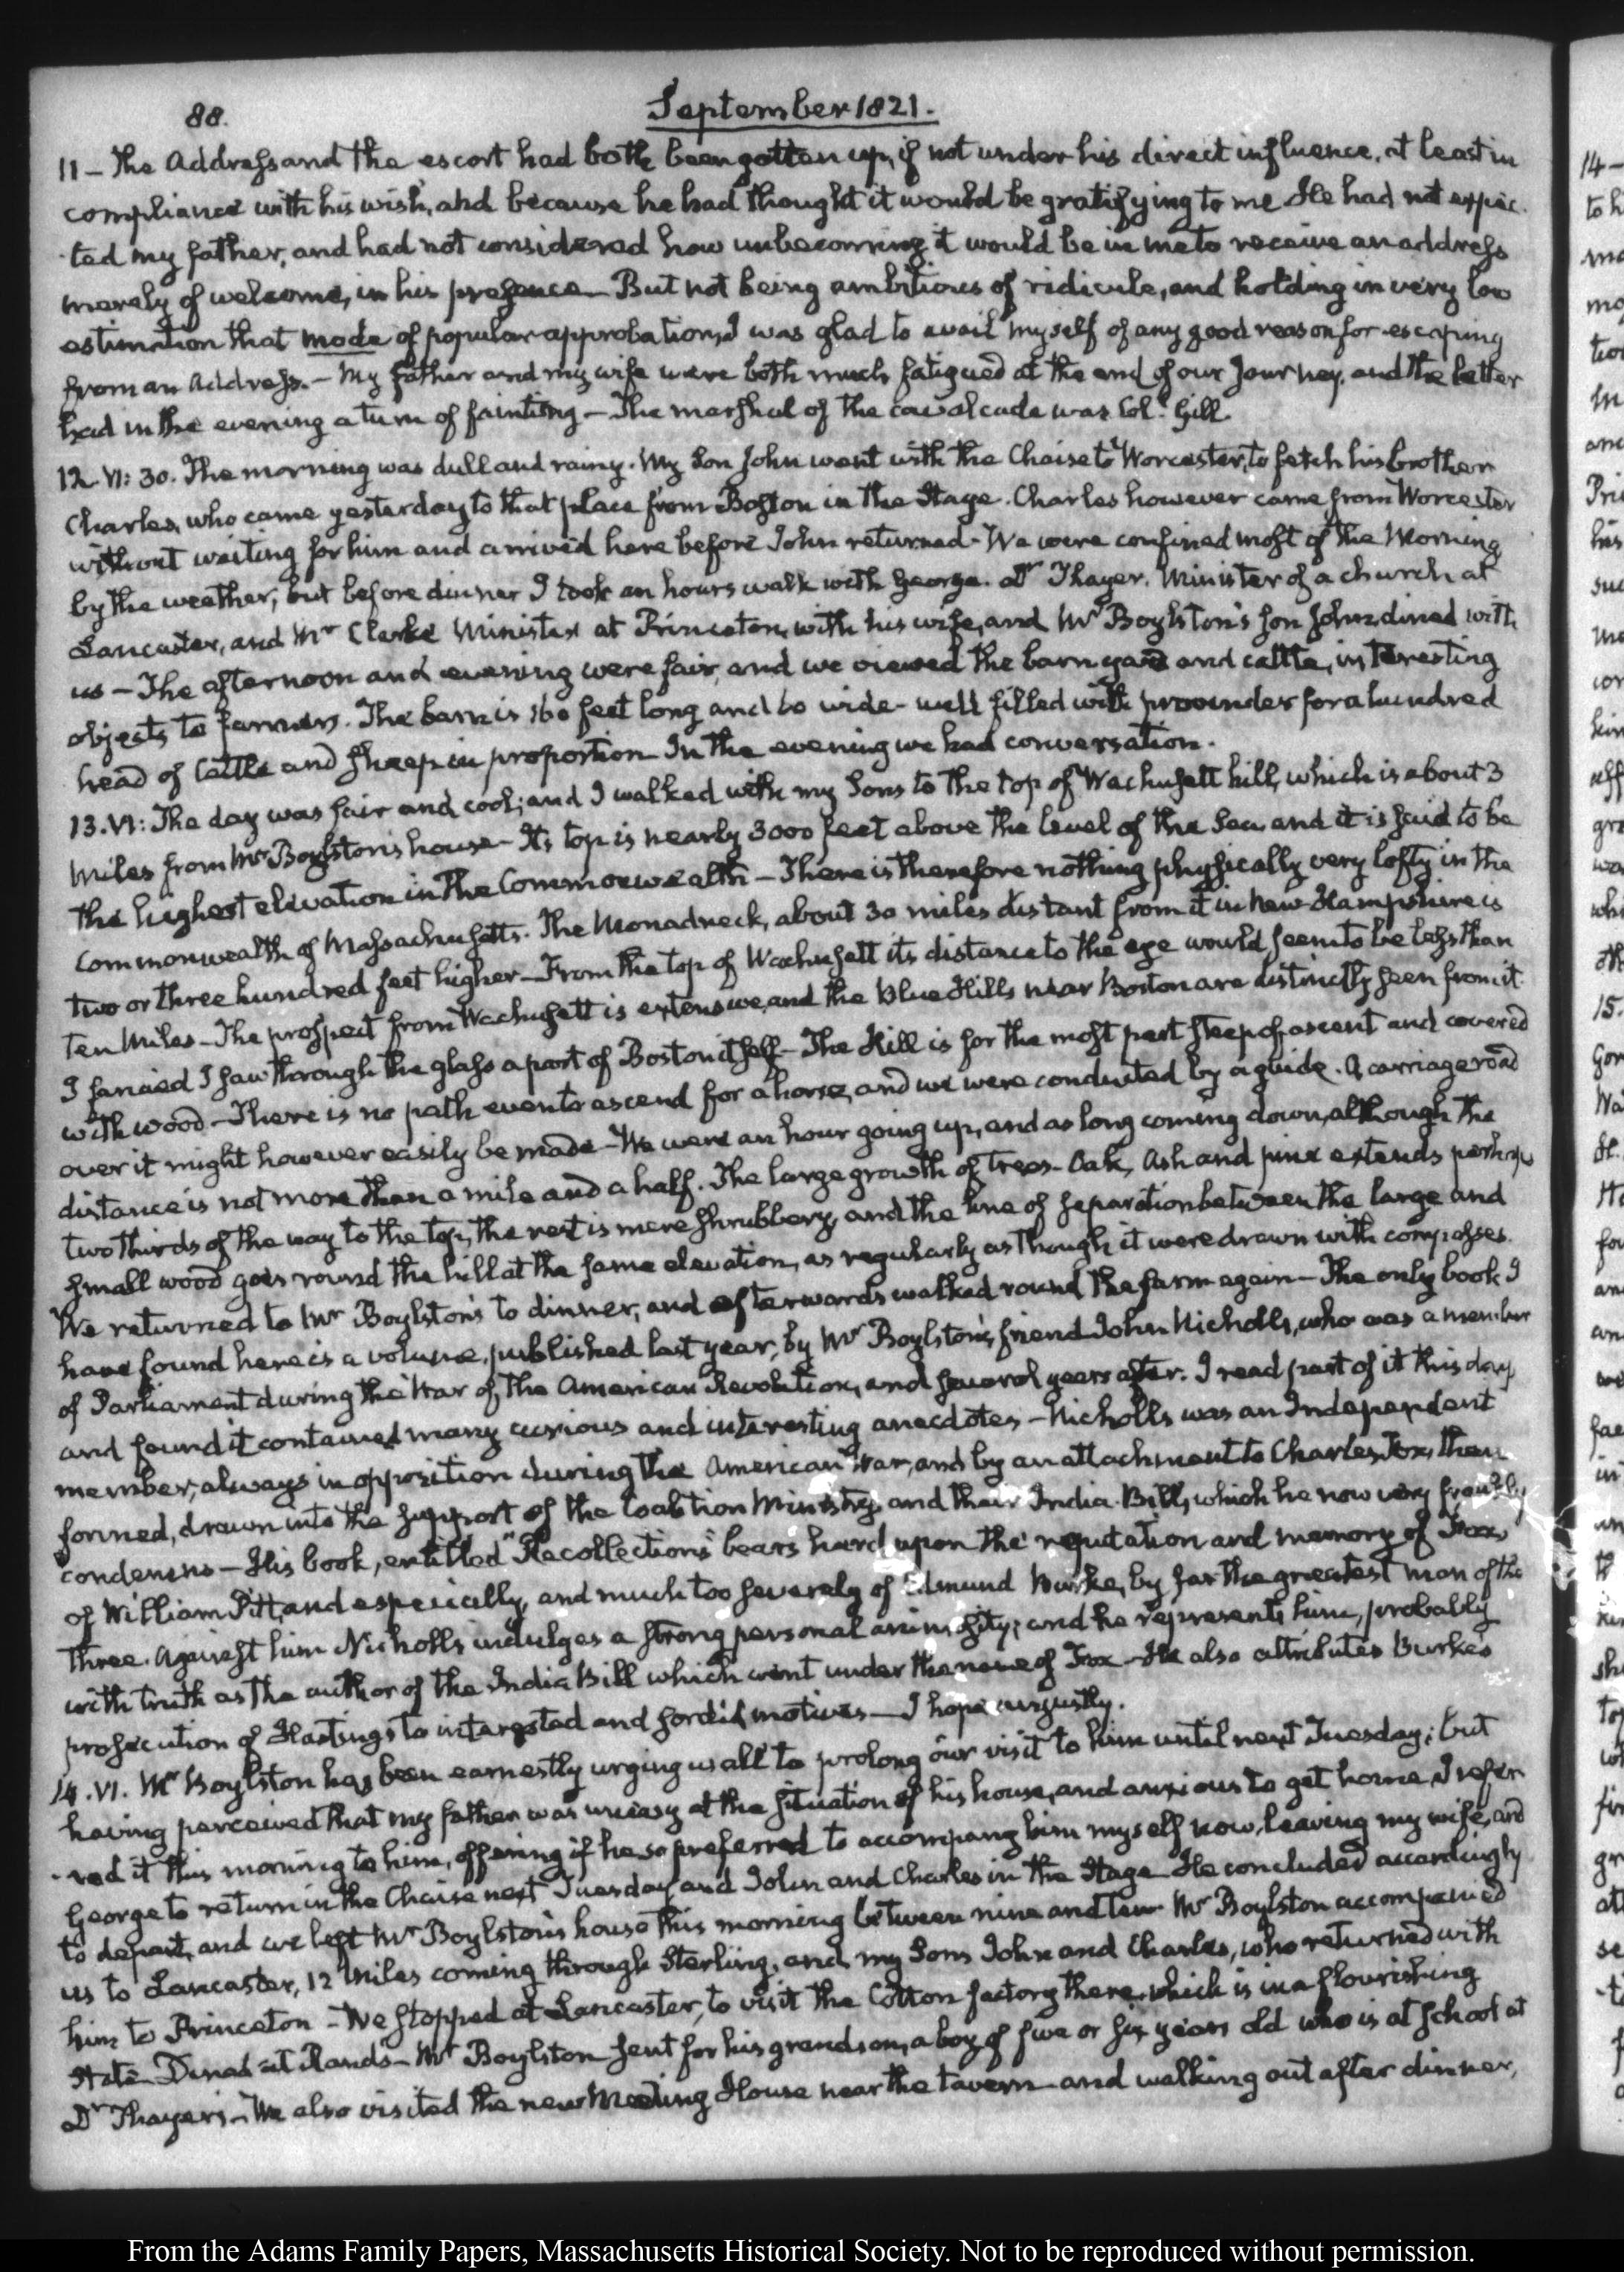 88.
September 1821.
11 - The Address and the escort had both been gotten up, if not under his direct influence, at least in
compliance with his wish, and because he had thought it would be gratifying to me He had not expec-
-ted my father, and had not considered how unbecoming it would be in me to receive an address
merely of welcome, in his presence - But not being ambitious of ridicule, and holding in very low
estimation that mode of popular approbation, I was glad to avail myself of any good reason for escaping
from an Address. - My father and my wife were both much fatigued at the end of our Journey, and the latter
had in the evening a turn of fainting - The marshal of the cavalcade was Col. Gill.
12. VI: 30. The morning was dull and rainy. My Son John went with the Chaise to Worcester, to fetch his brother
Charles, who came yesterday to that place from Boston in the Stage. Charles however came from Worcester
without waiting for him and arrived here before John returned - We were confined most of the Morning
by the weather, but before dinner I took an hours walk with George. Dr Thayer, Minister of a church at
Lancaster, and Mr Clarke Minister at Princeton, with his wife, and Mr Boylston's son John, dined with
us - The afternoon and evening were fair, and we viewed the barn yard and cattle, interesting
objects to farmers. The barn is 160 feet long and 60 wide - well filled with provender for a hundred
head of Cattle and sheep in proportion In the evening we had conversation.
13. VI: The day was fair and cool; and I walked with my Sons to the top of Wachusett hill, which is about 3
miles from Mr Boylston's house - Its top is nearly 3000 feet above the level of the Sea, and it is said to be
the highest elevation in the Commonwealth - There is therefore nothing physically very lofty in the
Commonwealth of Massachusetts. The Monadneck, about 30 miles distant from it in New-Hampshire is
two or three hundred feet higher - From the top of Wachusett its distance to the eye would seem to be less than
ten Miles - The prospect from Wachusett is extensive, and the Blue Hills near Boston are distinctly seen from it.
I fancied I saw through the glass a part of Boston itself - The Hill is for the most part steep of ascent and covered
with wood - There is no path even to ascend for a horse, and we were conducted by a guide. A carriage road
over it might however easily be made - We were an hour going up, and as long coming down, although the
distance is not more than a mile and a half. The large growth of trees - Oak, Ash and pine extends perhaps
two thirds of the way to the top, the rest is mere shrubbery, and the line of separation between the large and
small wood goes round the hill at the same elevation, as regularly as though it were drawn with compasses.
We returned to Mr Boylston's to dinner, and afterwards walked round the farm again - The only book I
have found here is a volume, published last year, by Mr Boylston's friend John Nicholls, who was a member
of Parliament during the War of the American Revolution, and several years after. I read part of it this day,
and found it contained many curious and interesting anecdotes - Nicholls was an Independent
member, always in opposition during the American War, and by an attachment to Charles Fox, then
formed, drawn into the support of the Coalition Ministry, and their India Bill, which he now very frankly
condemns - His book, entitled "Recollections" bears hard upon the reputation and memory of Fox,
of William Pitt, and especially, and much too severely of Edmund Burke, by far the greatest man of the
three. Against him Nicholls indulges a strong personal animosity; and he represents him, probably
with truth as the author of the India Bill which went under the name of Fox - He also attributes Burkes
prosecution of Hastings to interested and sordid motives - I hope unjustly.
14. VI. Mr Boylston has been earnestly urging us all to prolong our visit to him until next Tuesday; but
having perceived that my father was uneasy at the situation of his house, and anxious to get home, I refer-
-red it this morning to him, offering if he so preferred to accompany him myself now, leaving my wife, and
George to return in the Chaise next Tuesday and John and Charles in the Stage He concluded accordingly
to depart, and we left Mr Boylston's house this morning between nine and ten Mr Boylston accompanied
us to Lancaster, 12 miles coming through Sterling, and my Sons John and Charles, who returned with
him to Princeton - We stopped at Lancaster, to visit the Cotton factory there, which is in a flourishing
State Dined at Rands - Mr Boylston sent for his grandson, a boy of five or six years old who is at School at
Dr Thayer's - We also visited the new Meeting House near the tavern - and walking out after dinner,
From the Adams Family Papers, Massachusetts Historical Society. Not to be reproduced without permission.